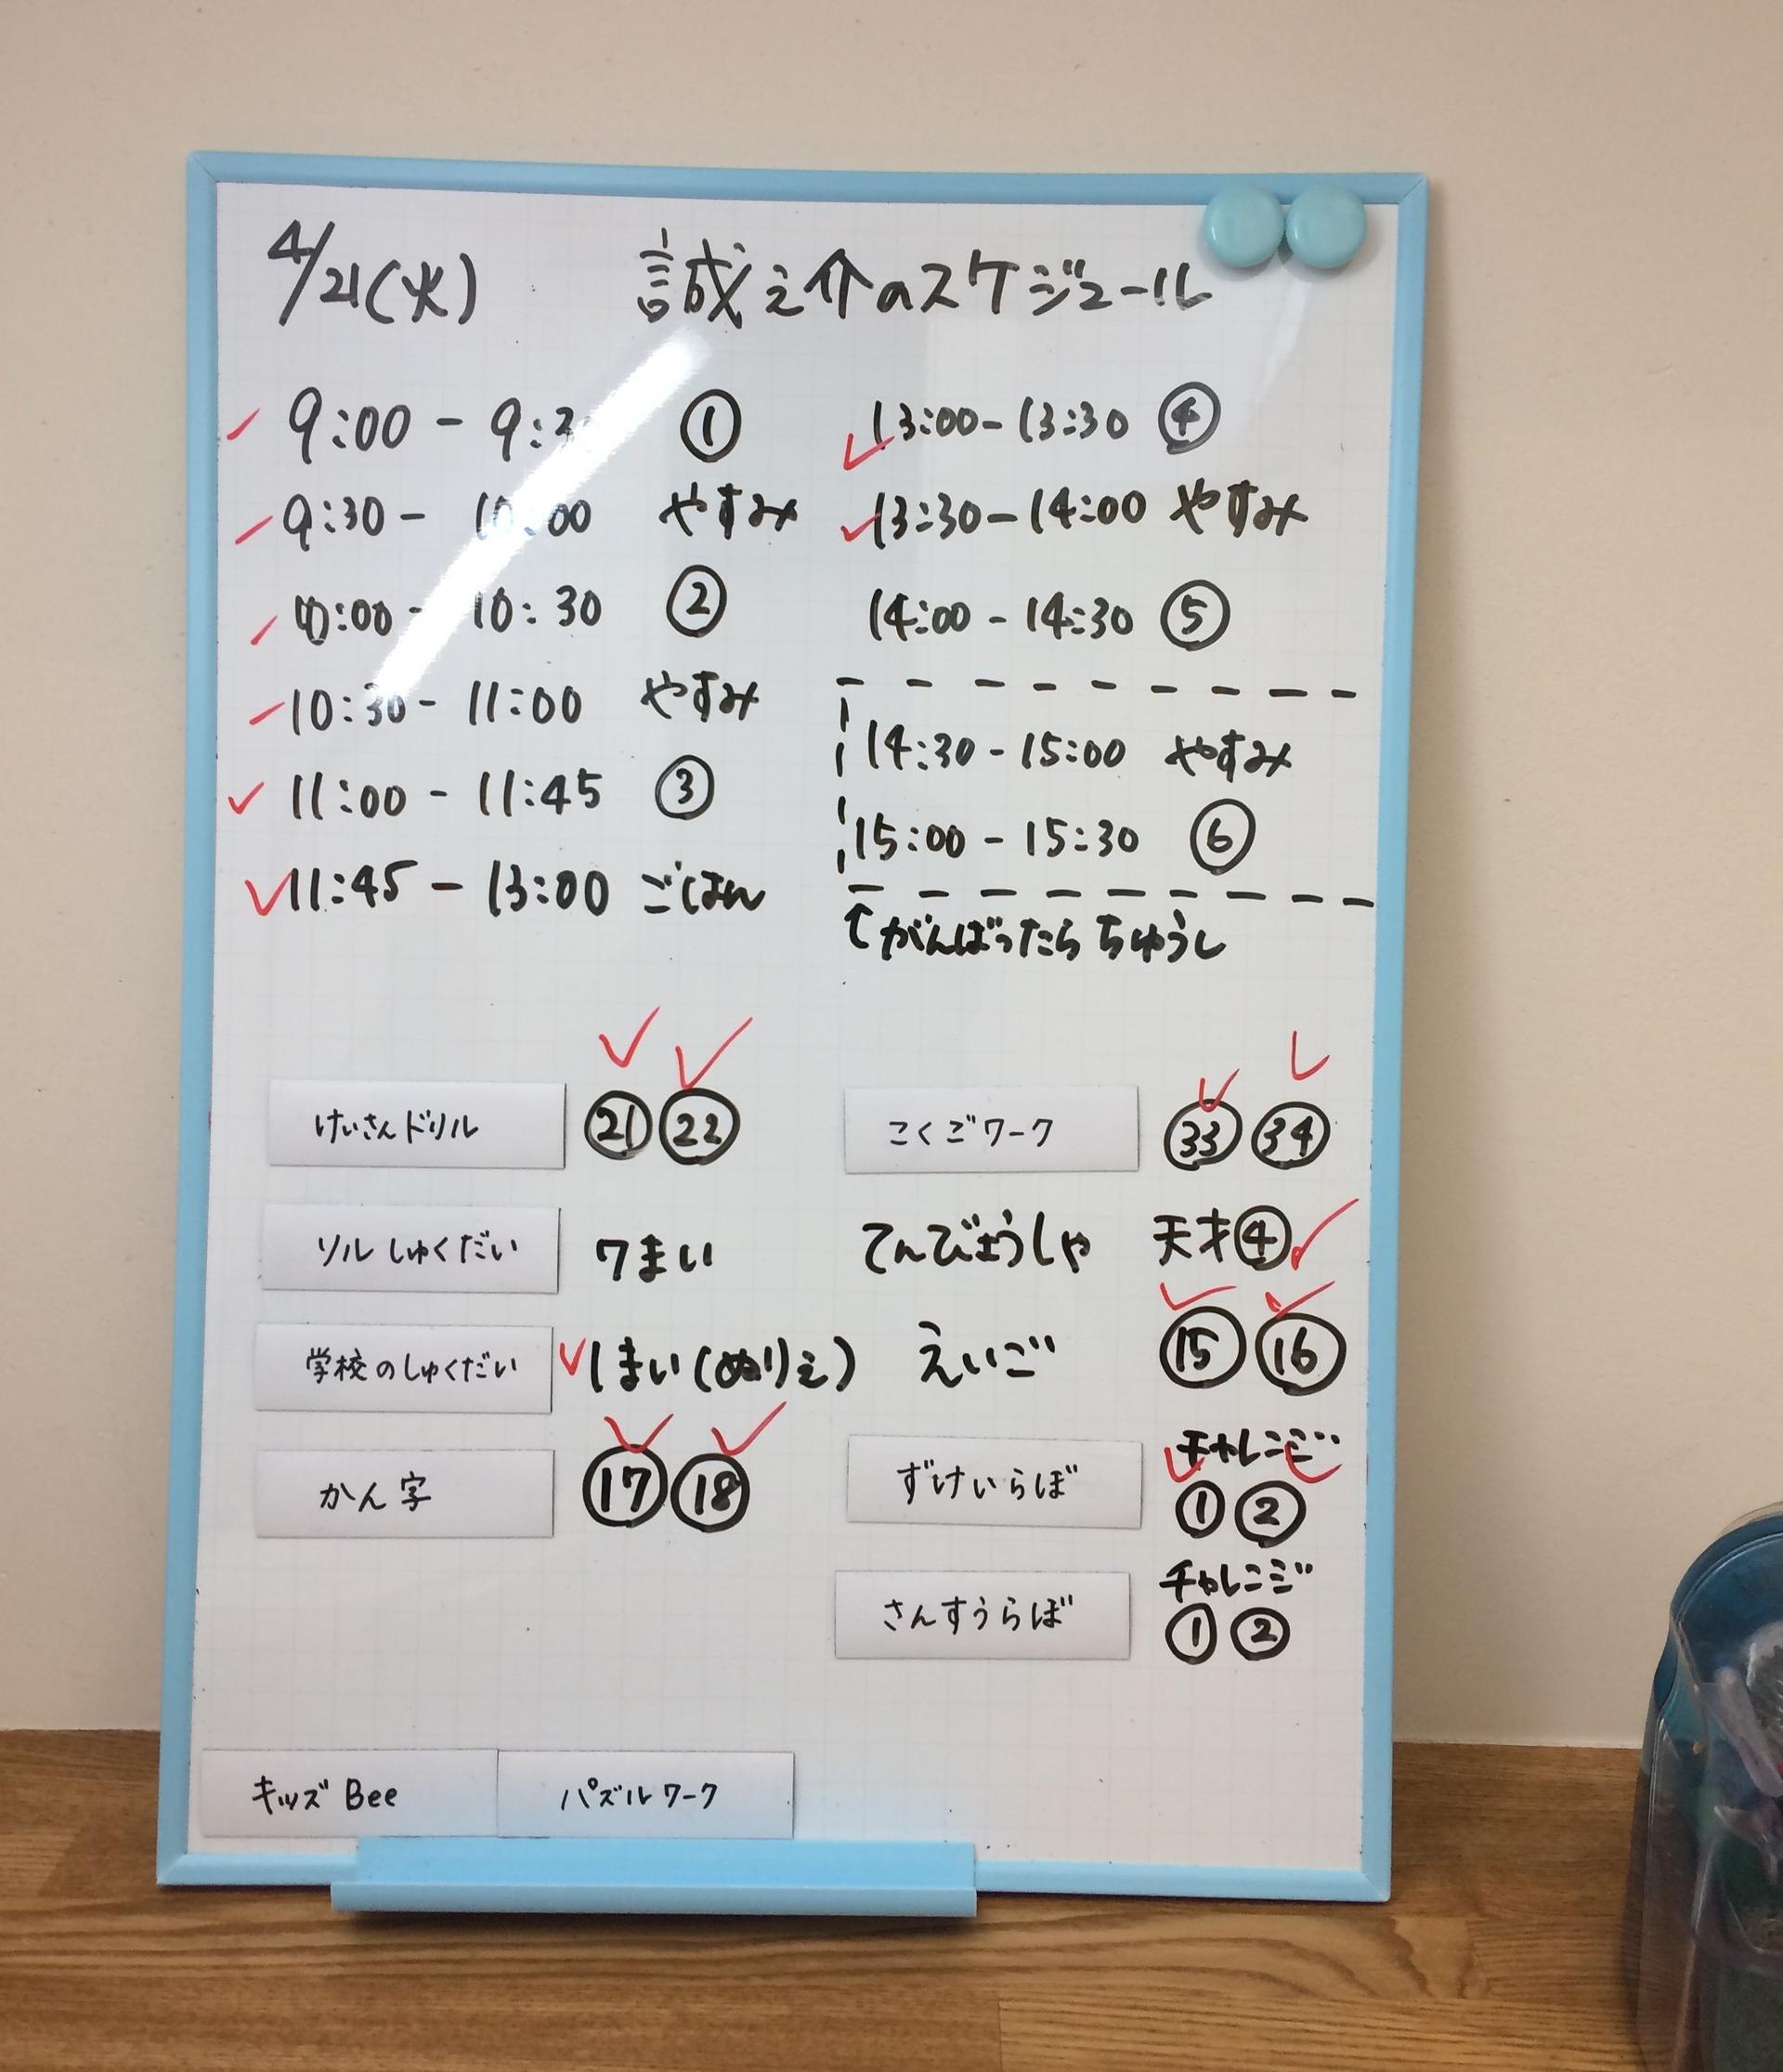 4/21(火) 誠之介のスケジュール
9:00 - 9:30 ①
9:30 - 10:00 やすみ
10:00 - 10:30 ②
10:30 - 11:00 やすみ
11:00 - 11:45 ③
11:45 - 13:00 ごはん
13:00 - 13:30 ④
13:30 - 14:00 やすみ
14:00 - 14:30 ⑤
14:30 - 15:00 やすみ
15:00 - 15:30 ⑥
↑がんばったら ちゅうし
けいさんドリル ㉑ ㉒
ソルしゅくだい 7まい
学校のしゅくだい 1まい(ぬりえ)
かん字 ⑰ ⑱
こくごワーク ㉝ ㉞
てんびょうしゃ 天才④
えいご ⑮ ⑯
ずけいらぼ チャレンジ
① ②
さんすうらぼ チャレンジ
① ②
キッズBee パズルワーク